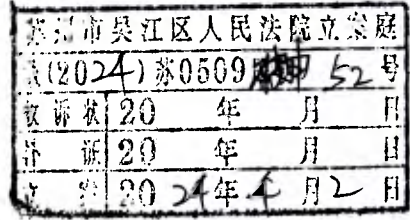 苏州市吴江区人民法院立案庭
(2024)苏0509 52号
收诉状 20 年 月 日
补 证 20 年 月 日
立 案 2024年4月2日